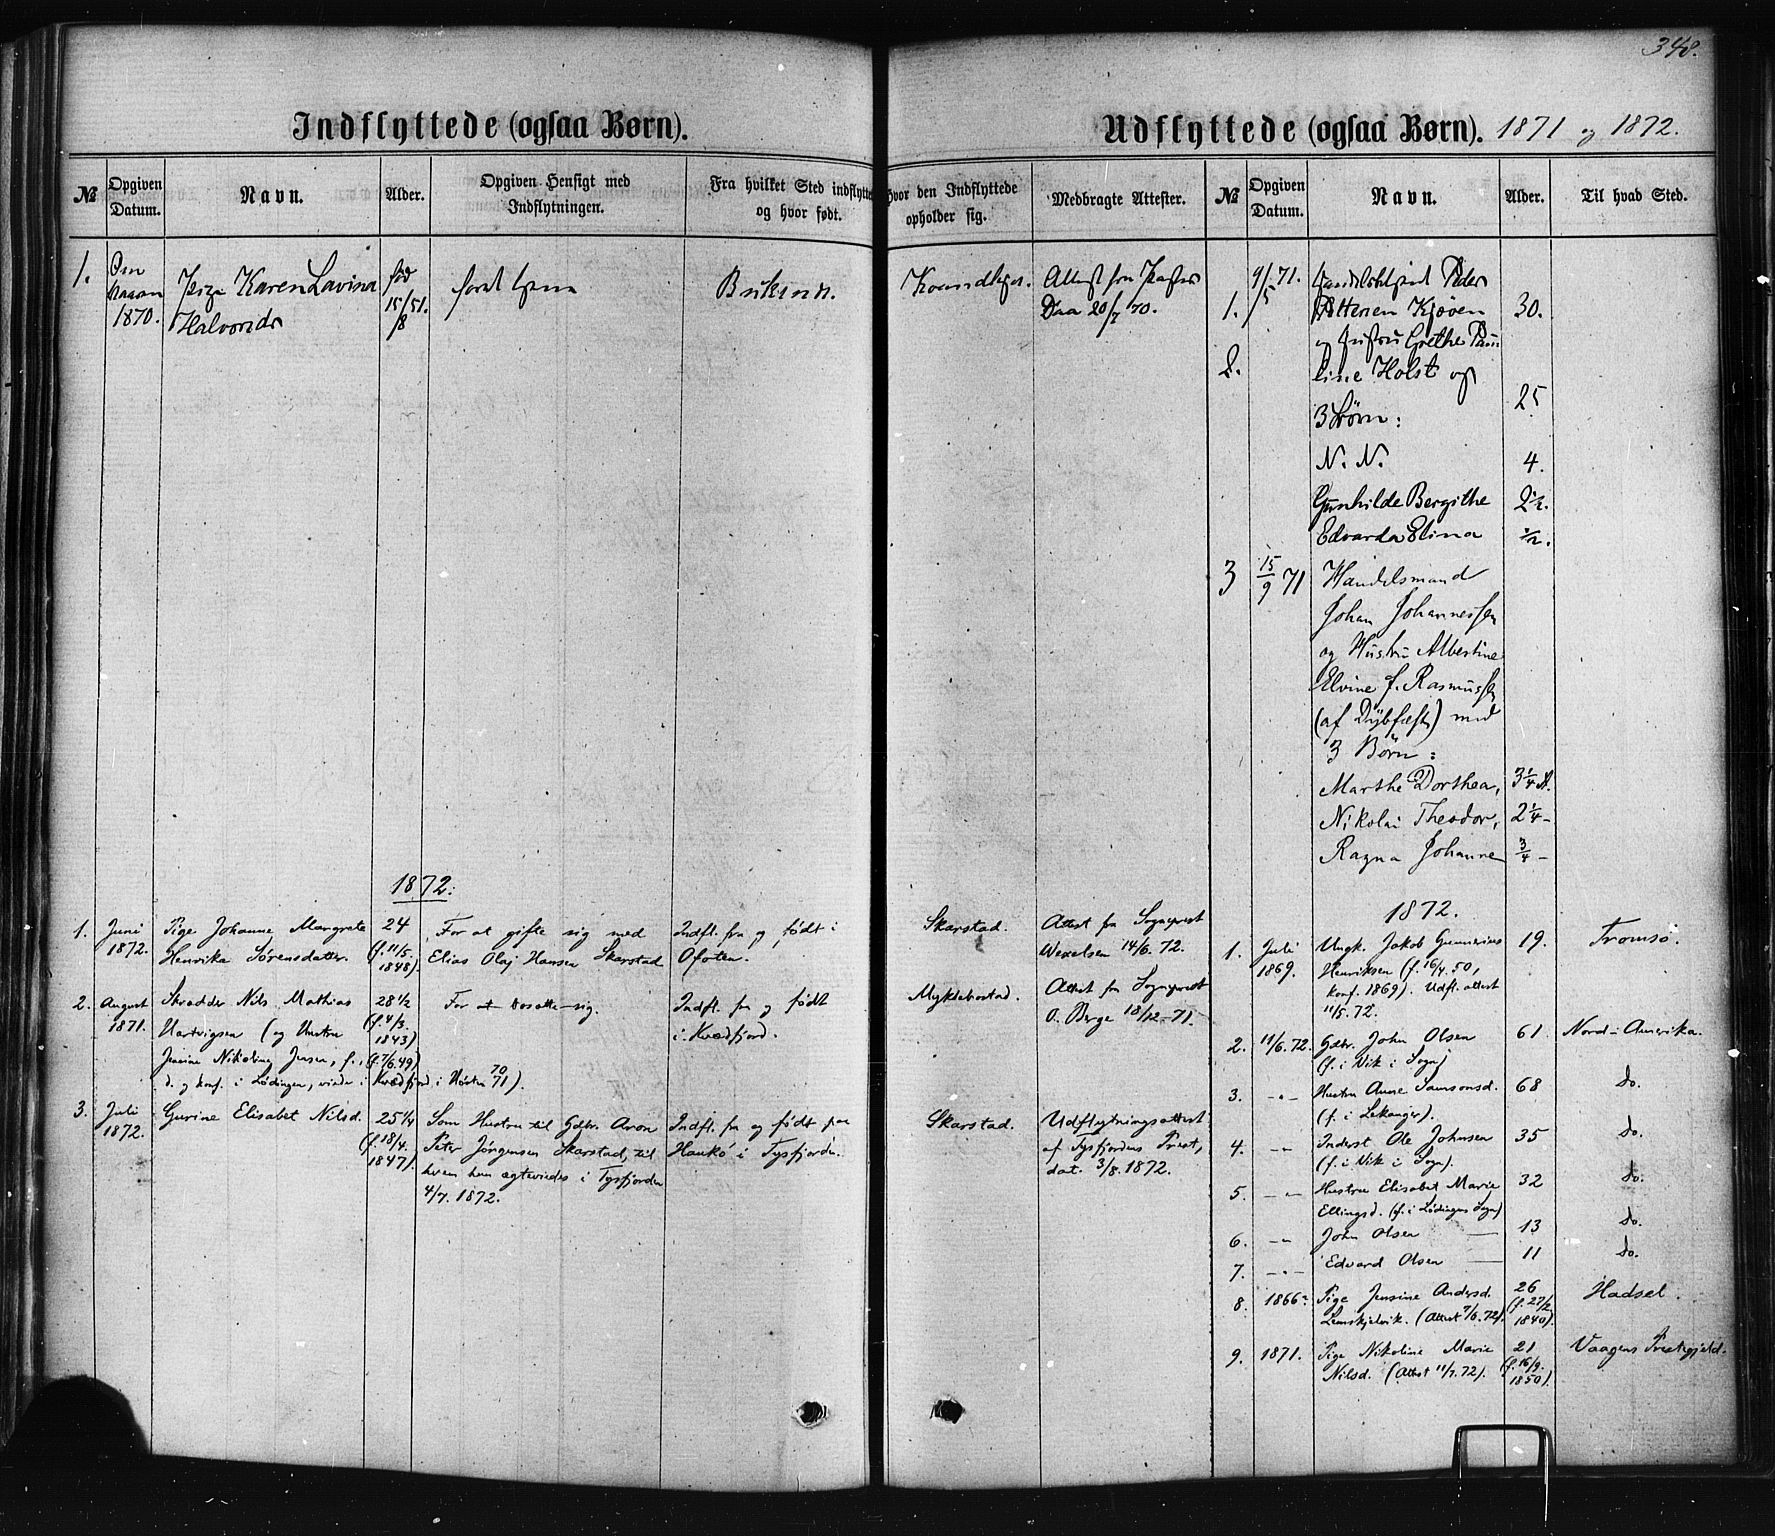 348.
Indflyttede (ogsaa Børn).
№
Opgiven Datum.
Navn.
Alder.
Opgiven Hensigt med Indflytningen.
Fra hvilket Sted indflyttet og hvor født.
1.
1870.
Pige Karen Lavina
Halvorsds
fød
15/8 51.
Buksnæs.
1872.
1.
Juni
1872.
Pige Johanne Margrete
Henrika Sörensdatter.
24
(f. 11/5.
1848).
For at gifte sig med
Elias Olaj Hansen Skarstad
Indfl. fra og født i
Ofoten.
2.
August
1871.
Skrædder Nils Mathias
Hartvigsen (og Hustru
Jensine Nikoline Jensen, f.,
d. og konf. i Lödingen, viede i Kvædfjord i Hösten 70/71).
28 1/2
(f. 4/3.
1843)
(f. 7/6. 49)
For at bosætte sig.
Indfl. fra og født
i Kvædfjord.
3.
Juli
1872.
Gurine Elisabet Nilsd.
25 1/4
(f. 18/4.
1847).
Som Hustru til Gdbr. Aron
Peter Jörgensen Skarstad, til
hvem hun ægteviedes i Tysfjorden
4/7. 1872.
Indfl. fra og født paa
Haukö i Tysfjorden.
Udflyttede (ogsaa Børn). 1871 og 1872.
Hvor den Indflyttede opholder sig.
Medbragte Attester.
№
Opgiven Datum.
Navn.
Alder.
Til hvad Sted.
Attest fra Pastor
Daa 20/7 70.
Skarstad.
Attest fra Sogneprest
Wexelsen 14/6. 72.
Myklebostad.
Attest fra Sogneprest
O. Berge 18/12 - 71.
Skarstad.
Udflytningsattest
af Tysfjordens Prest,
dat. 3/8. 1872.
1.
9/5 71.
Peder
Kjöven
30.
2.
og Hustru Grethe Pau
line Holst og
25
3 Börn:
N. N.
4.
Gunhilde Bergithe
2 1/2.
Edvarda Elina
1/2.
3
15/9 71
Handelsmand
Johan Johannessen
og Hustru Albertine
Elvine f. Rasmussen
(af Dybfæst) med
3 Börn:
Marthe Dorthea,
3 1/4 A.
Nikolai Theodor,
2 1/4 -
Ragna Johanne
3/4 -
1872.
1.
Juli
1869.
Ungk. Jakob Gunnerius
Henriksen (f. 16/4. 50,
konf. 1869). Udfl. attest
11/5. 72.
19.
Tromsö.
2.
11/6. 72.
Gdbr. John Olsen
(f. i Vik i Sogn)
61
Nord-Amerika.
3.
- " -
Hustru Anne Samsonsd.
(f. i Lekanger).
68
do.
4.
- -
Inderst Ole Johnsen
(f. i Vik i Sogn).
35
do.
5.
- -
Hustru Elisabet Marie
Ellingsd. (f. i Lödingens Sogn)
32
do.
6.
- -
John Olsen
13
do.
7.
- " -
Edvard Olsen
11
do.
8.
1866?
Pige Jensine Andersd.
(Attest 7/6. 72).
26
(f. 27/2
1840).
Hadsel.
9.
1871.
Pige Nikoline Marie
Nilsd. (Attest 11/7. 72).
21
(f. 16/9.
1850).
Vaagens Prestegjeld.